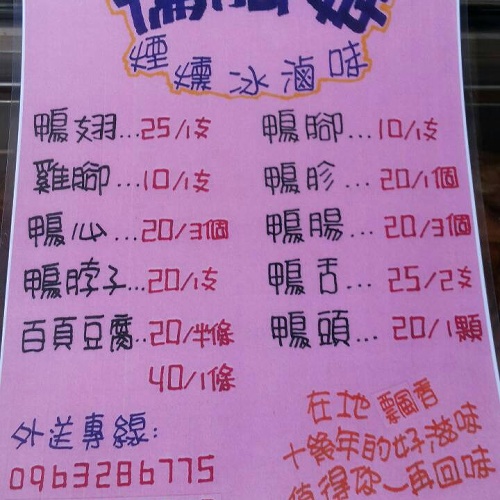 煙燻冰滷味
鴨翅...25/1支
鴨腳...10/1支
雞腳...10/1支
鴨胗...20/1個
鴨心...20/3個
鴨腸...20/3個
鴨脖子...20/1支
鴨舌...25/2支
百頁豆腐..20/半條
40/1條
鴨頭...20/1顆
外送專線:
0963286775
在地飄香
十幾年的好滋味
值得你一再回味